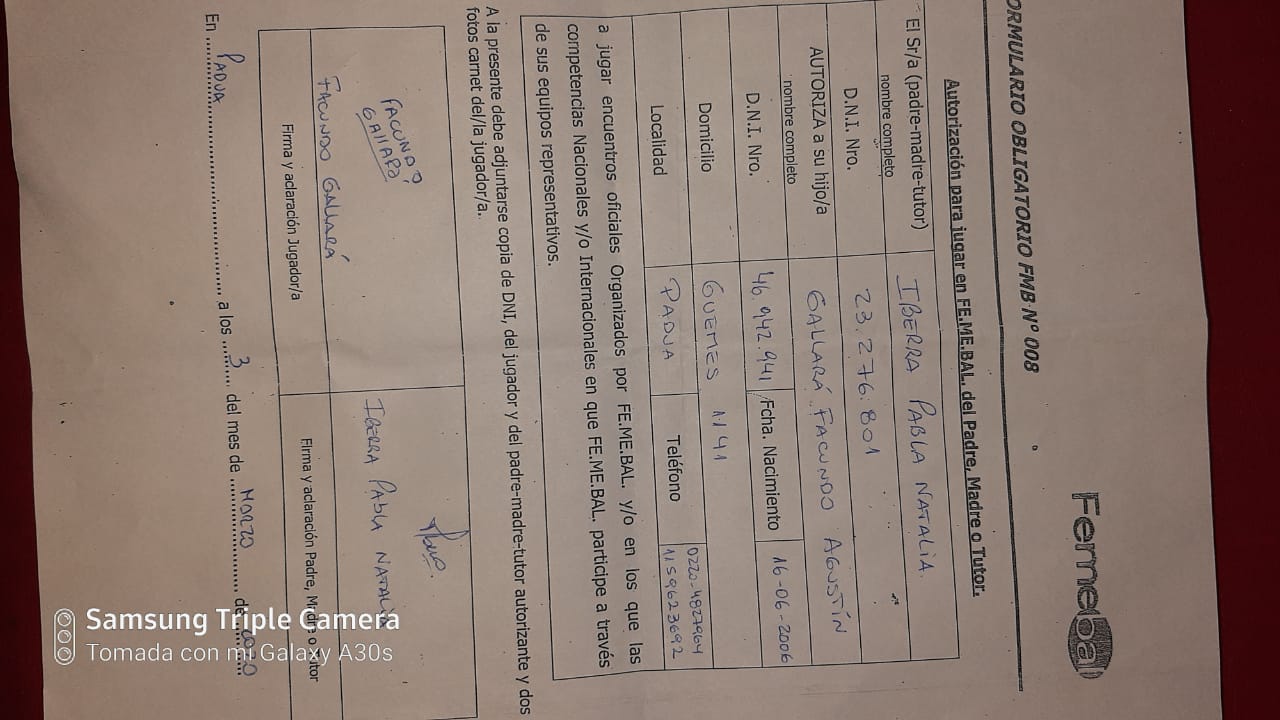 Femebal
ORMULARIO OBLIGATORIO FMB Nº 008
Autorización para jugar en FE.ME.BAL. del Padre, Madre o Tutor.
El Sr/a (padre-madre-tutor) nombre completo IBERRA PABLA NATALIA
D.N.I. Nro. 23.276.801
AUTORIZA a su hijo/a nombre completo GALLARÁ FACUNDO AGUSTÍN
D.N.I. Nro. 46.942.941 Fcha. Nacimiento 16-06-2006
Domicilio GUEMES 1141
Localidad PADUA Teléfono 0220-4827964
1159623692
a jugar encuentros oficiales Organizados por FE.ME.BAL. y/o en los que las
competencias Nacionales y/o Internacionales en que FE.ME.BAL. participe a través
de sus equipos representativos.
A la presente debe adjuntarse copia de DNI, del jugador y del padre-madre-tutor autorizante y dos
fotos carnet del/la jugador/a.
FACUNDO
GALLARÁ
FACUNDO GALLARÁ
IBERRA PABLA NATALIA
Firma y aclaración Jugador/a
Firma y aclaración Padre, Madre o Tutor
En PADUA a los 3 del mes de MARZO de 2020
Samsung Triple Camera
Tomada con mi Galaxy A30s